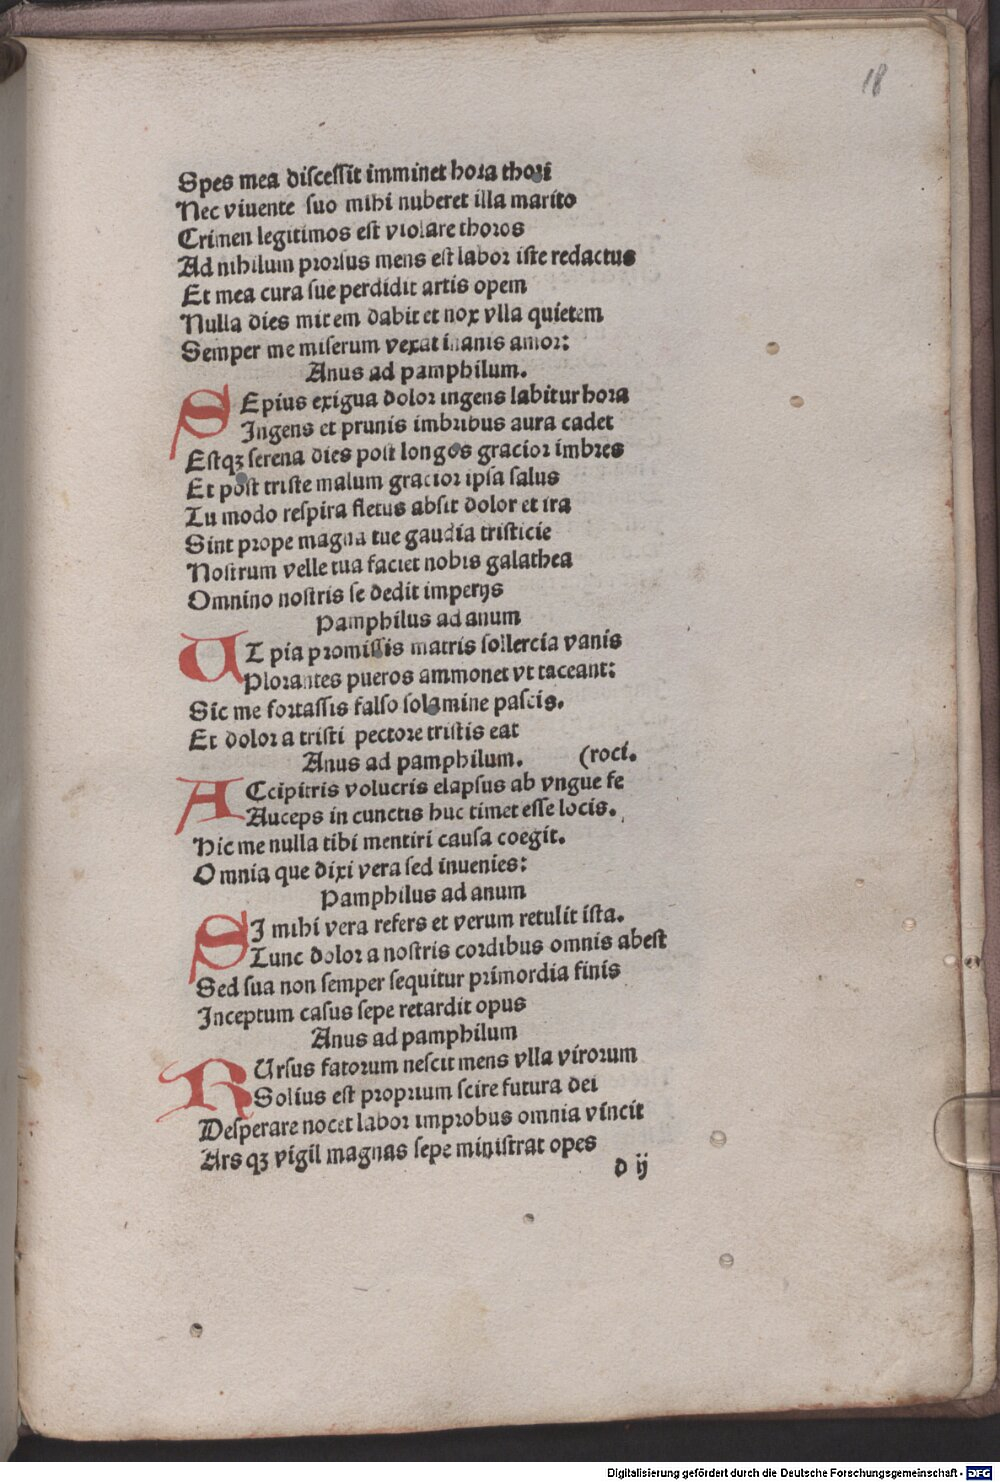 18
Spes mea discessit imminet hora thori
Nec viuente suo mihi nuberet illa marito
Crimen legitimos est violare thoros
Ad nihilum prorsus mens est labor iste redactus
Et mea cura sue perdidit artis opem
Nulla dies mitem dabit et nox vlla quietem
Semper me miserum vexat inanis amor:
Anus ad pamphilum.
SEpius exigua dolor ingens labitur hora
Ingens et prunis imbribus aura cadet
Estqꝫ serena dies post longos gracior imbres
Et post triste malum gracior ipsa salus
Tu modo respira fletus absit dolor et ira
Sint prope magna tue gaudia tristicie
Nostrum velle tua faciet nobis galathea
Omnino nostris se dedit imperijs
Pamphilus ad anum
UT pia promissis matris sollercia vanis
Plorantes pueros ammonet vt taceant:
Sic me fortassis falso solamine pascis.
Et dolor a tristi pectore tristis eat
Anus ad pamphilum. (roci.
ACcipitris volucris elapsus ab vngue fe
Auceps in cunctis huc timet esse locis.
Hic me nulla tibi mentiri causa coegit.
Omnia que dixi vera sed inuenies:
Pamphilus ad anum
SI mihi vera refers et verum retulit ista.
Tunc dolor a nostris cordibus omnis abest
Sed sua non semper sequitur primordia finis
Inceptum casus sepe retardit opus
Anus ad pamphilum
RUrsus fatorum nescit mens vlla virorum
Solius est proprium scire futura dei
Desperare nocet labor improbus omnia vincit
Ars qꝫ vigil magnas sepe ministrat opes
d ij
Digitalisierung gefördert durch die Deutsche Forschungsgemeinschaft - DFG